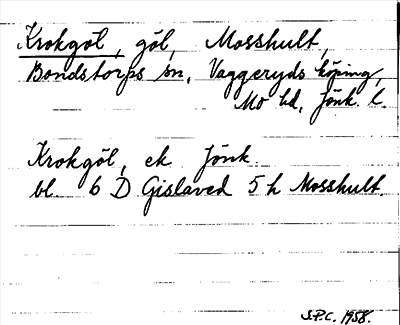 Krokgöl, göl, Mosshult,
Bondstorps sn, Vaggeryds köping,
Mo hd, Jönk. l.
Krokgöl, ek Jönk
bl. 6 D Gislaved 5 h Mosshult.
S.P.C. 1958.